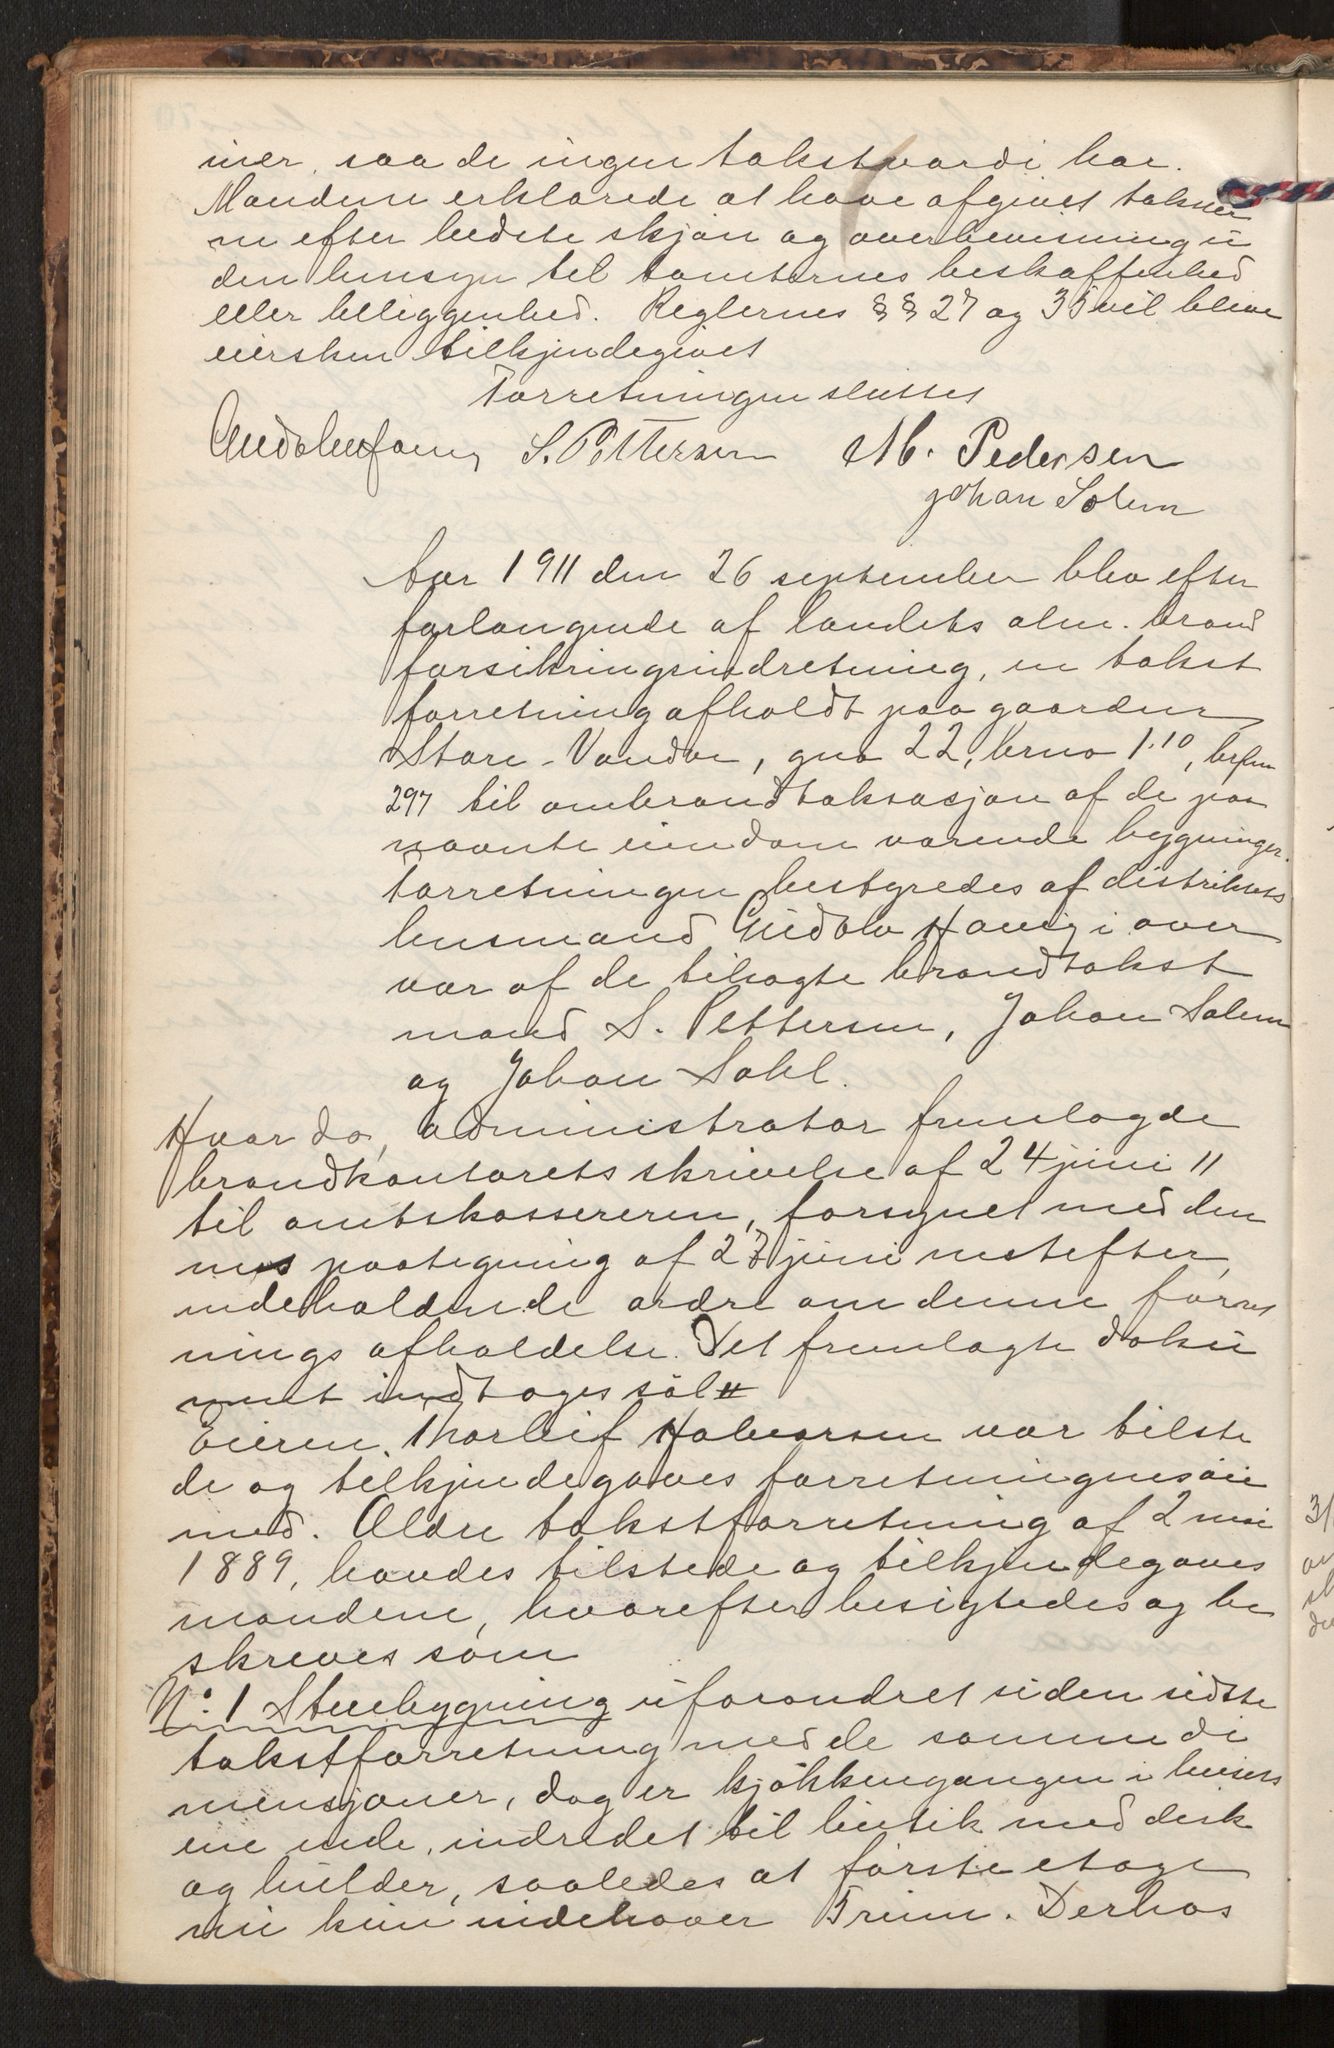 iner, saa de ingen takstværdi har.
Mændene erklærede at have afgivet takster
ne efter bedste skjøn og overbevisning u
den hensyn til tomternes beskaffenhed
eller beliggenhed. Reglernes §§ 27 og 35 vil blive
eiersken tilkjendegivet
Forretningen sluttet
Gudolv Haug S. Pettersen M. Pedersen
Johan Solem
Aar 1911 den 26 september blev efter
forlangende af landets alm. brand
forsikringsindretning, en takst
forretning afholdt paa gaarden
Store-Vandve, gno 22, brno 1.10, brfno
297 til ombrandtaksasjon af de paa
nævnte eiendom værende bygninger.
Forretningen bestyredes af distriktets
lensmand Gudolv Haug i over
vær af de tilsagte brandtakst
mænd S. Pettersen, Johan Solem
og Johan Dahl.
Hvor da, administrator fremlagde
brandkontorets skrivelse af 24 juni 11
til amtskassereren, forsynet med den
nes paategning af 27 juni nestefter,
indeholdende ordre om denne forret
nings afholdelse. Det fremlagte doku
ment indtages sål #
Eieren, Thorleif Halvorsen var tilste
de og tilkjendegaves forretningens øie
med. Ældre takstforretning af 2 mai
1889, havdes tilstede og tilkjendegaves
mændene, hvorefter besigtedes og be
skreves som
No. 1 Stuebygning uforandret siden sidste
takstforretning med de samme di
mensjoner, dog er kjøkkengangen i husets
ene ende, indredet til butik med disk
og hylder, saaledes at første etage
nu kun indehaver 5 rum. Derhos